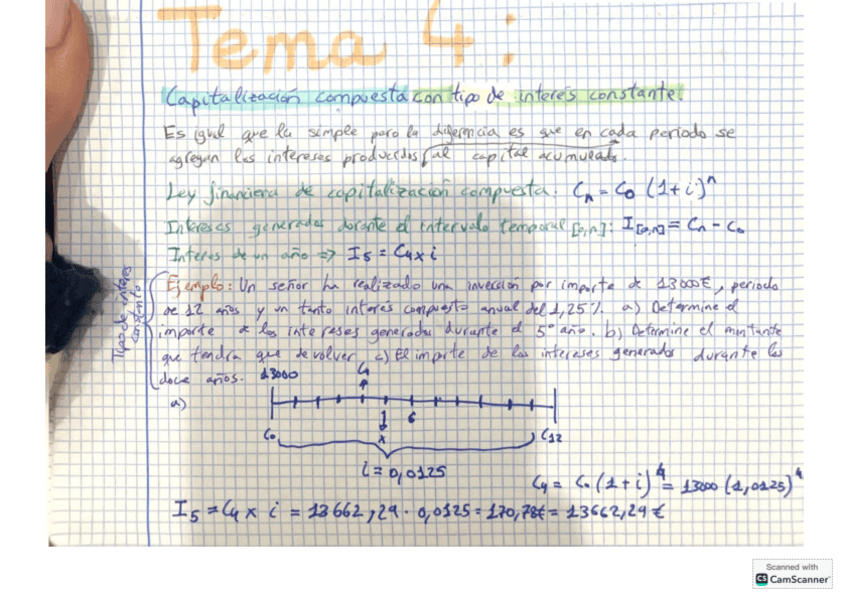 Tema 4:
Capitalización compuesta con tipo de interés constante.
Es igual que la simple pero la diferencia es que en cada período se
agregan los intereses producidos al capital acumulado.
Ley financiera de capitalización compuesta: Cn = C0 (1+i)^n
Intereses generados durante el intervalo temporal [0,n]: I[0,n] = Cn - C0
Interes de un año => I5 = C4 x i
Tipo de interes constante
Ejemplo: Un señor ha realizado una inversión por importe de 13000€, periodo
de 12 años y un tanto interés compuesto anual del 1,25%. a) Determine el
importe de los intereses generados durante el 5º año. b) Determine el montante
que tendrá que devolver c) El importe de los intereses generados durante los
doce años.
13000 C4
a)
6
C0 x C12
i = 0,0125
C4 = C0 (1+i)^4 = 13000 (1,0125)^4
I5 = C4 x i = 13662,29 · 0,0125 = 170,78€ = 13662,29 €
Scanned with
CS CamScanner